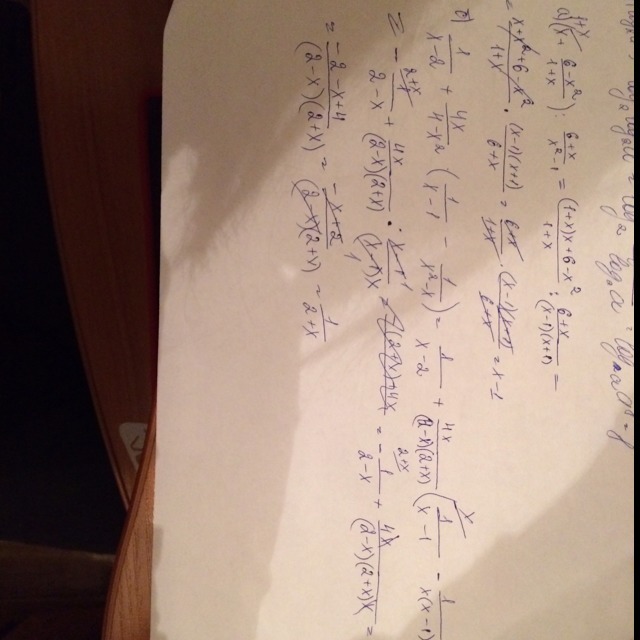 а) (x + (6-x²)/(1+x)) : (6+x)/(x²-1) = ((1+x)x+6-x²)/(1+x) : (6+x)/((x-1)(x+1)) =
= (x+x²+6-x²)/(1+x) · (x-1)(x+1)/(6+x) = (6+x)/(1+x) · (x-1)(x+1)/(6+x) = x-1
1/(x-2) + 4x/(4-x²) (1/(x-1) - 1/(x²-x)) = 1/(x-2) + 4x/((2-x)(2+x)) (1/(x-1) - 1/(x(x-1))
= - 1/(2-x) + 4x/((2-x)(2+x)) · (x-1)/((x-1)x) = = - 1/(2-x) + 4x/((2-x)(2+x)x) =
= (-2-x+4)/((2-x)(2+x)) = (-x+2)/((2-x)(2+x)) = 1/(2+x)